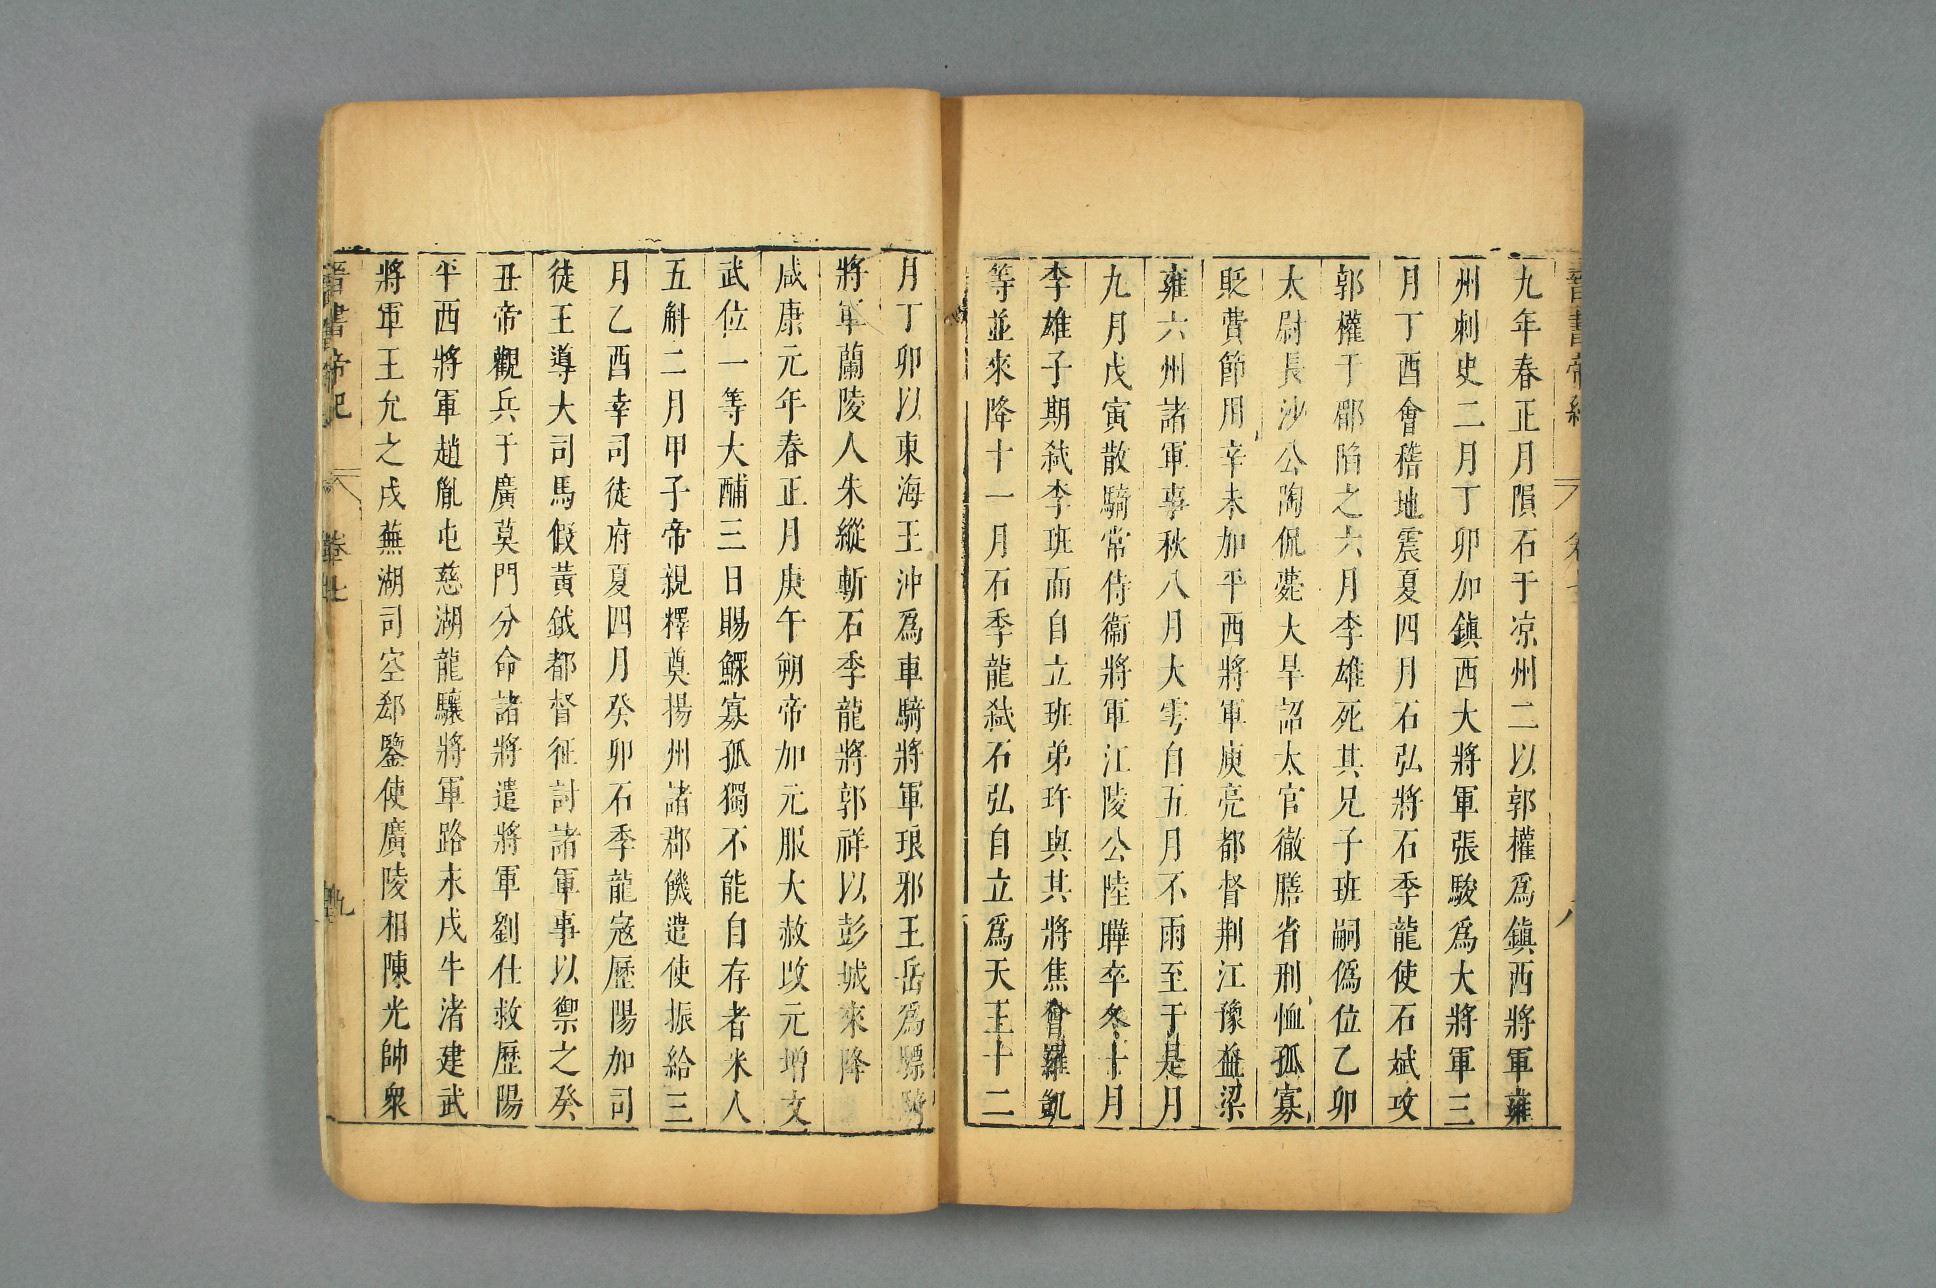 九年春正月隕石于凉州二以郭權爲鎮西將軍雍
州刺史二月丁卯加鎮西大將軍張駿爲大將軍三
月丁酉會稽地震夏四月石弘將石季龍使石斌攻
郭權于郿陷之六月李雄死其兄子班嗣僞位乙卯
太尉長沙公陶侃薨大旱詔太官徹膳省刑恤孤寡
貶費節用辛未加平西將軍庾亮都督荆江豫益梁
雍六州諸軍事秋八月大雩自五月不雨至于是月
九月戊寅散騎常侍衞將軍江陵公陸曄卒冬十月
李雄子期弑李班而自立班弟玝與其將焦會羅凱
等並來降十一月石季龍弑石弘自立爲天王十二
月丁卯以東海王沖爲車騎將軍琅邪王岳爲驃騎
將軍蘭陵人朱縱斬石季龍將郭祥以彭城來降
咸康元年春正月庚午朔帝加元服大赦改元增文
武位一等大酺三日賜鰥寡孤獨不能自存者米人
五斛二月甲子帝親釋奠揚州諸郡饑遣使振給三
月乙酉幸司徒府夏四月癸卯石季龍寇歷陽加司
徒王導大司馬假黃鉞都督征討諸軍事以禦之癸
丑帝觀兵于廣莫門分命諸將遣將軍劉仕救歷陽
平西將軍趙胤屯慈湖龍驤將軍路永戍牛渚建武
將軍王允之戍蕪湖司空郄鑒使廣陵相陳光帥衆
晉書帝紀 卷七 九